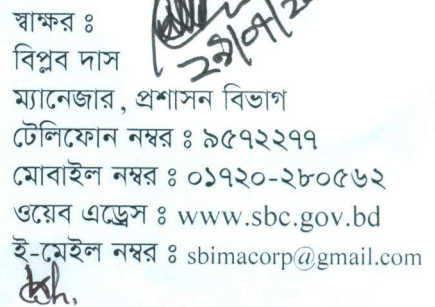 স্বাক্ষর ঃ
বিপ্লব দাস
ম্যানেজার, প্রশাসন বিভাগ
টেলিফোন নম্বর ঃ ৯৫৭২২৭৭
মোবাইল নম্বর ঃ ০১৭২০-২৮০৫৬২
ওয়েব এড্রেস ঃ www.sbc.gov.bd
ই-মেইল নম্বর ঃ sbimacorp@gmail.com